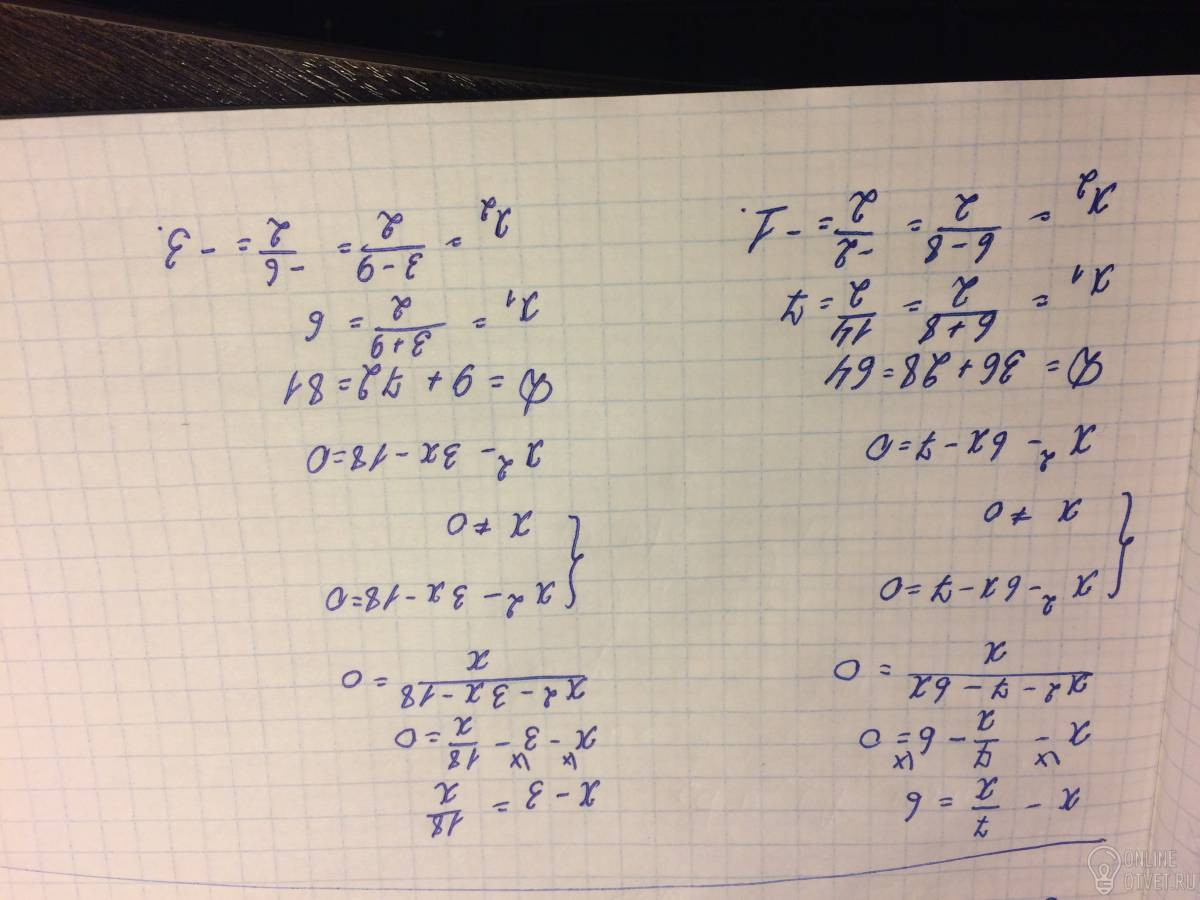 x - 7/x = 6
x\x - 7/x - 6\x = 0
(x² - 7 - 6x)/x = 0
{ x² - 6x - 7 = 0
x ≠ 0
x² - 6x - 7 = 0
D = 36 + 28 = 64
x₁ = (6 + 8)/2 = 14/2 = 7
x₂ = (6 - 8)/2 = -2/2 = -1.
x - 3 = 18/x
x\x - 3\x - 18/x = 0
(x² - 3x - 18)/x = 0
{ x² - 3x - 18 = 0
x ≠ 0
x² - 3x - 18 = 0
D = 9 + 72 = 81
x₁ = (3 + 9)/2 = 6
x₂ = (3 - 9)/2 = -6/2 = -3.
ONLINE
OTVET.RU